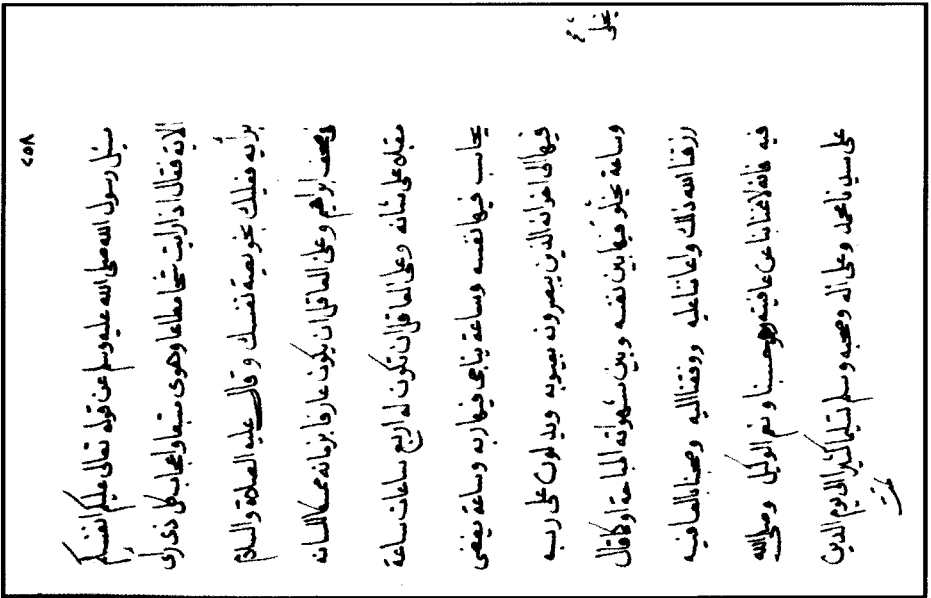 ٢٥٨
سئل رسول الله صلى الله عليه وسلم عن قوله تعالى عليكم انفسكم
الاية فقال اذا رايت شحا مطاعا وهوى متبعا واعجاب كل ذى راى
برأيه فعليك بخويصة نفسك وقال عليه الصلاة والسلام
وفى صحف ابراهيم وعلى العاقل ان يكون عارفا بزمانه ممسكا للسانه
مقبلا على شانه وعلى العاقل ان تكون له اربع ساعات ساعة
يحاسب فيها نفسه وساعة يناجى فيها ربه وساعة يفضى
فيها الى اخوانه الذين يبصرونه بعيوبه ويدلونه على ربه
وساعة يخلو فيها بين نفسه وبين شهواته المباحة او كما قال
رزقنا الله ذلك واعاننا عليه ووفقنا اليه وصحبنا بالعافية
فيه فانه لا غنا بنا عن عافيته وهو حسبنا ونعم الوكيل وصلى الله
على سيدنا محمد وعلى اله وصحبه وسلم تسليما كثيرا الى يوم الدين
تمت